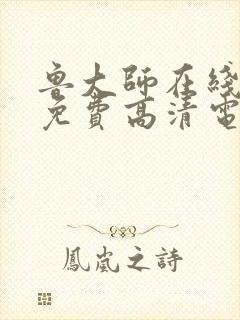 鲁大師在綫
免費高清電
鳳嵐之詩